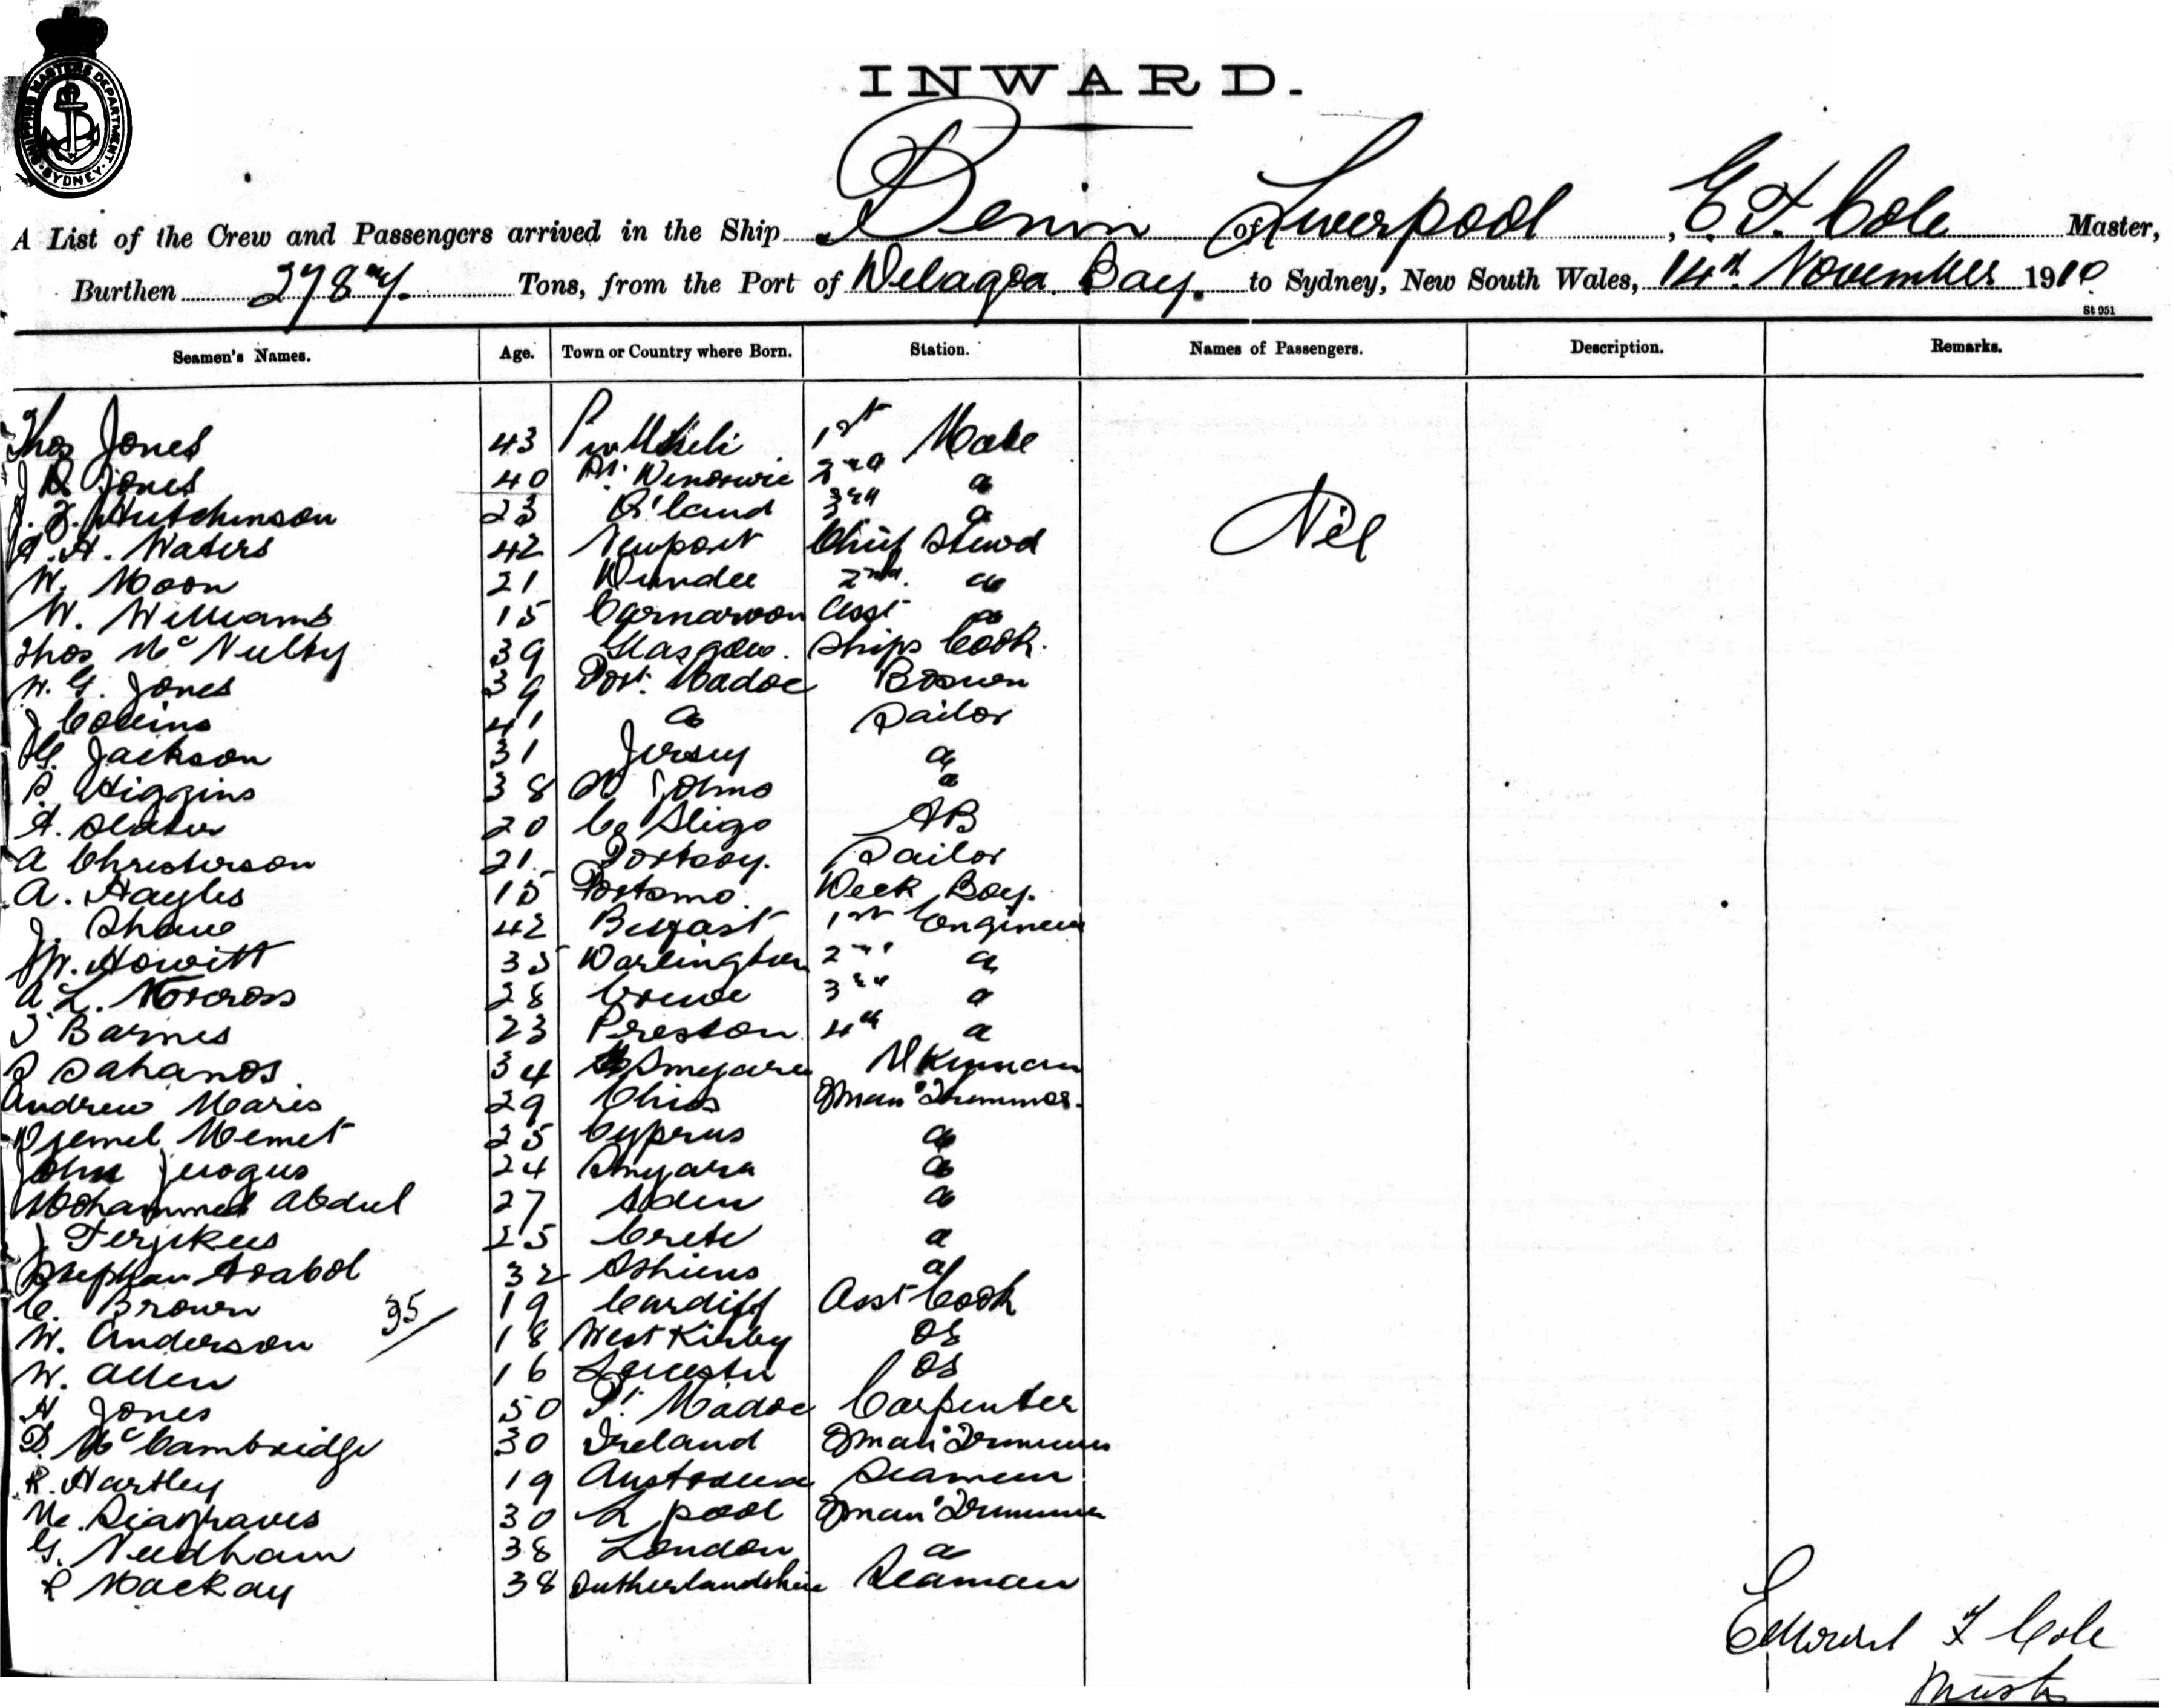 SHIPPING MASTERS DEPARTMENT
SYDNEY
INWARD.
A List of the Crew and Passengers arrived in the Ship Benin of Liverpool, E. F. Cole Master,
Burthen 2787 Tons, from the Port of Delagoa Bay. to Sydney, New South Wales, 14th November 1910
St 051
Seamen's Names. Age. Town or Country where Born. Station. Names of Passengers. Description. Remarks.
Thos Jones 43 Pwllheli 1st Mate
J D Jones 40 2nd do
Hutchinson 23 3rd do
A. H. Waters 42 Newport Chief Stewd
Nil
W. Moon 21 Dundee 2nd. do
W. Williams 15 Carnarvon Asst do
Thos McNulty 39 Glasgow. Ships Cook.
W. G. Jones 39 Port Madoc Bosun
J Collins 41 do Sailor
H. Jackson 31 Jersey do
P Higgins 38 St Johns do
A. Slater 20 Co Sligo AB
A Christerson 21 Portsoy. Sailor
A. Hayles 15 Portsmo Deck Boy.
J. Shaw 42 Belfast 1st Engineer
W. Howitt 35 Darlington 2nd do
A L. Norcross 28 Crewe 3rd do
J Barnes 23 Preston 4th do
S Sahanos 34 Smyarna
Andrew Maris 29 Chios Fman & Trimmer.
Djemel Memet 25 Cyprus do
John 24 Smyara do
Mohammed Abdul 27 Aden do
J Terjikus 25 Crete do
Stephan Arabol 32 Athiens do
C. Brown 19 Cardiff Asst Cook
35
W. Anderson 18 West Kirby OS
W. Allen 16 Leicester OS
H Jones 50 Pt. Madoc Carpenter
D. McCambridge 30 Ireland Fman & Trimmer
R. Hartley 19 Australia Seaman
M. Seagraves 30 L pool Fman & Trimmer
G. Needham 38 London do
R Mackay 38 Sutherlandshire Seaman
Edward F Cole
Master